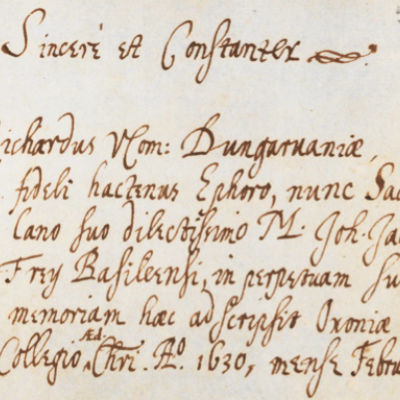 Sincerè et Constanter
ichardus VCom: Dungarvaniæ,
fideli hactenus Ephoro, nunc Sac
lano suo dilectissimo M. Joh. Jac
Frey Basileensi, in perpetuam su
memoriam hæc adscripsit Oxoniæ
Collegio Æd. Chri. Aº. 1630, mense Febru